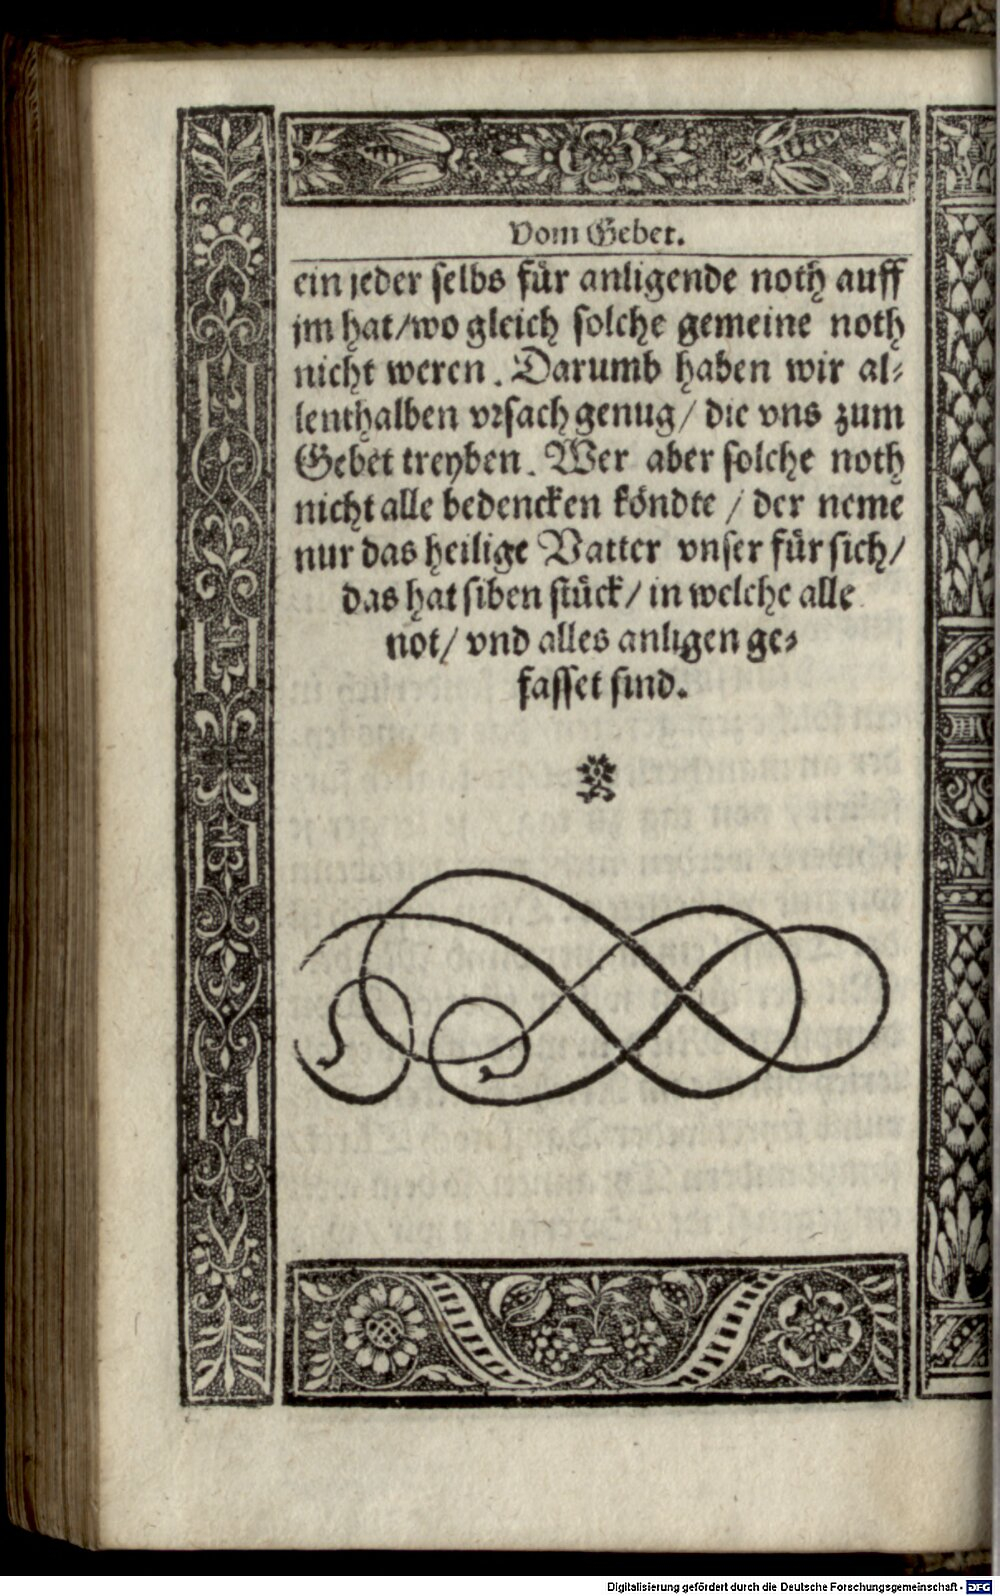 Vom Gebet.
ein jeder selbs für anligende noth auff
jm hat/wo gleich solche gemeine noth
nicht weren. Darumb haben wir al⸗
lenthalben vrsach genug/ die vns zum
Gebet treyben. Wer aber solche noth
nicht alle bedencken köndte / der neme
nur das heilige Vatter vnser für sich/
das hat siben stück/ in welche alle
not/ vnd alles anligen ge⸗
fasset sind.
Digitalisierung gefördert durch die Deutsche Forschungsgemeinschaft - DFG